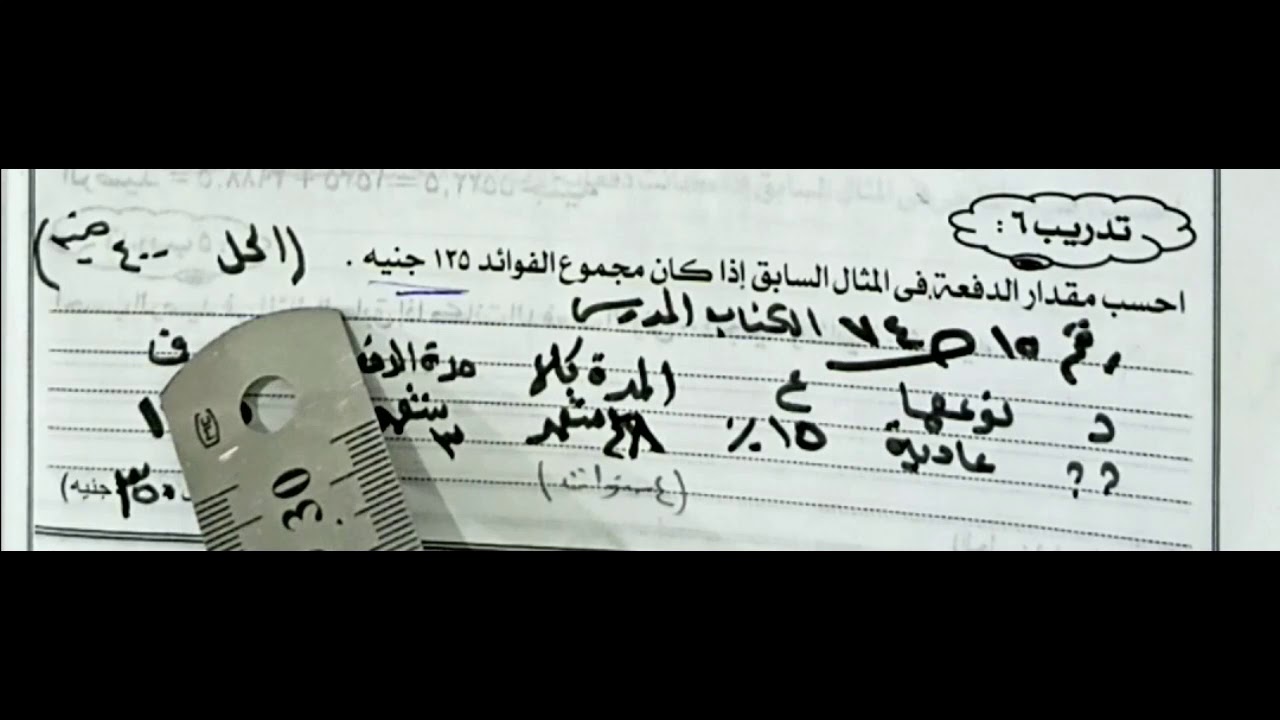 تدريب ٦ :
احسب مقدار الدفعة فى المثال السابق إذا كان مجموع الفوائد ١٢٥ جنيه . (الحل ٤٠٠ جنيه)
رقم ١٥ ص ٧٤ الكتاب المدرسى
د نوعها ع المدة بالـ مدة الدف ف
؟؟ عادية ١٥ ٪ ٤٨ شهر ٣ شهر ١
(٤ سنوات) ٣٥٠ جنيه)
(٣٤)
30